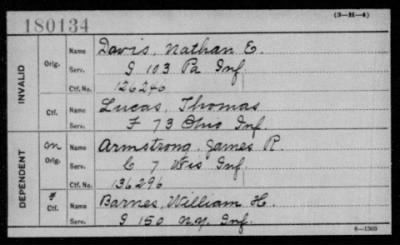 180134
(3-H-4)
INVALID
Orig.
Name Davis, Nathan E.
Serv. G 103 Pa Inf.
Ctf. No. 126240
Ctf.
Name Lucas, Thomas
Serv. F 73 Ohio Inf.
DEPENDENT
on Orig.
Name Armstrong, James R.
Serv. C 7 Wis Inf.
Ctf. No. 136296
Ctf.
Name Barnes, William H.
Serv. G 150 N.Y. Inf.
6-1360